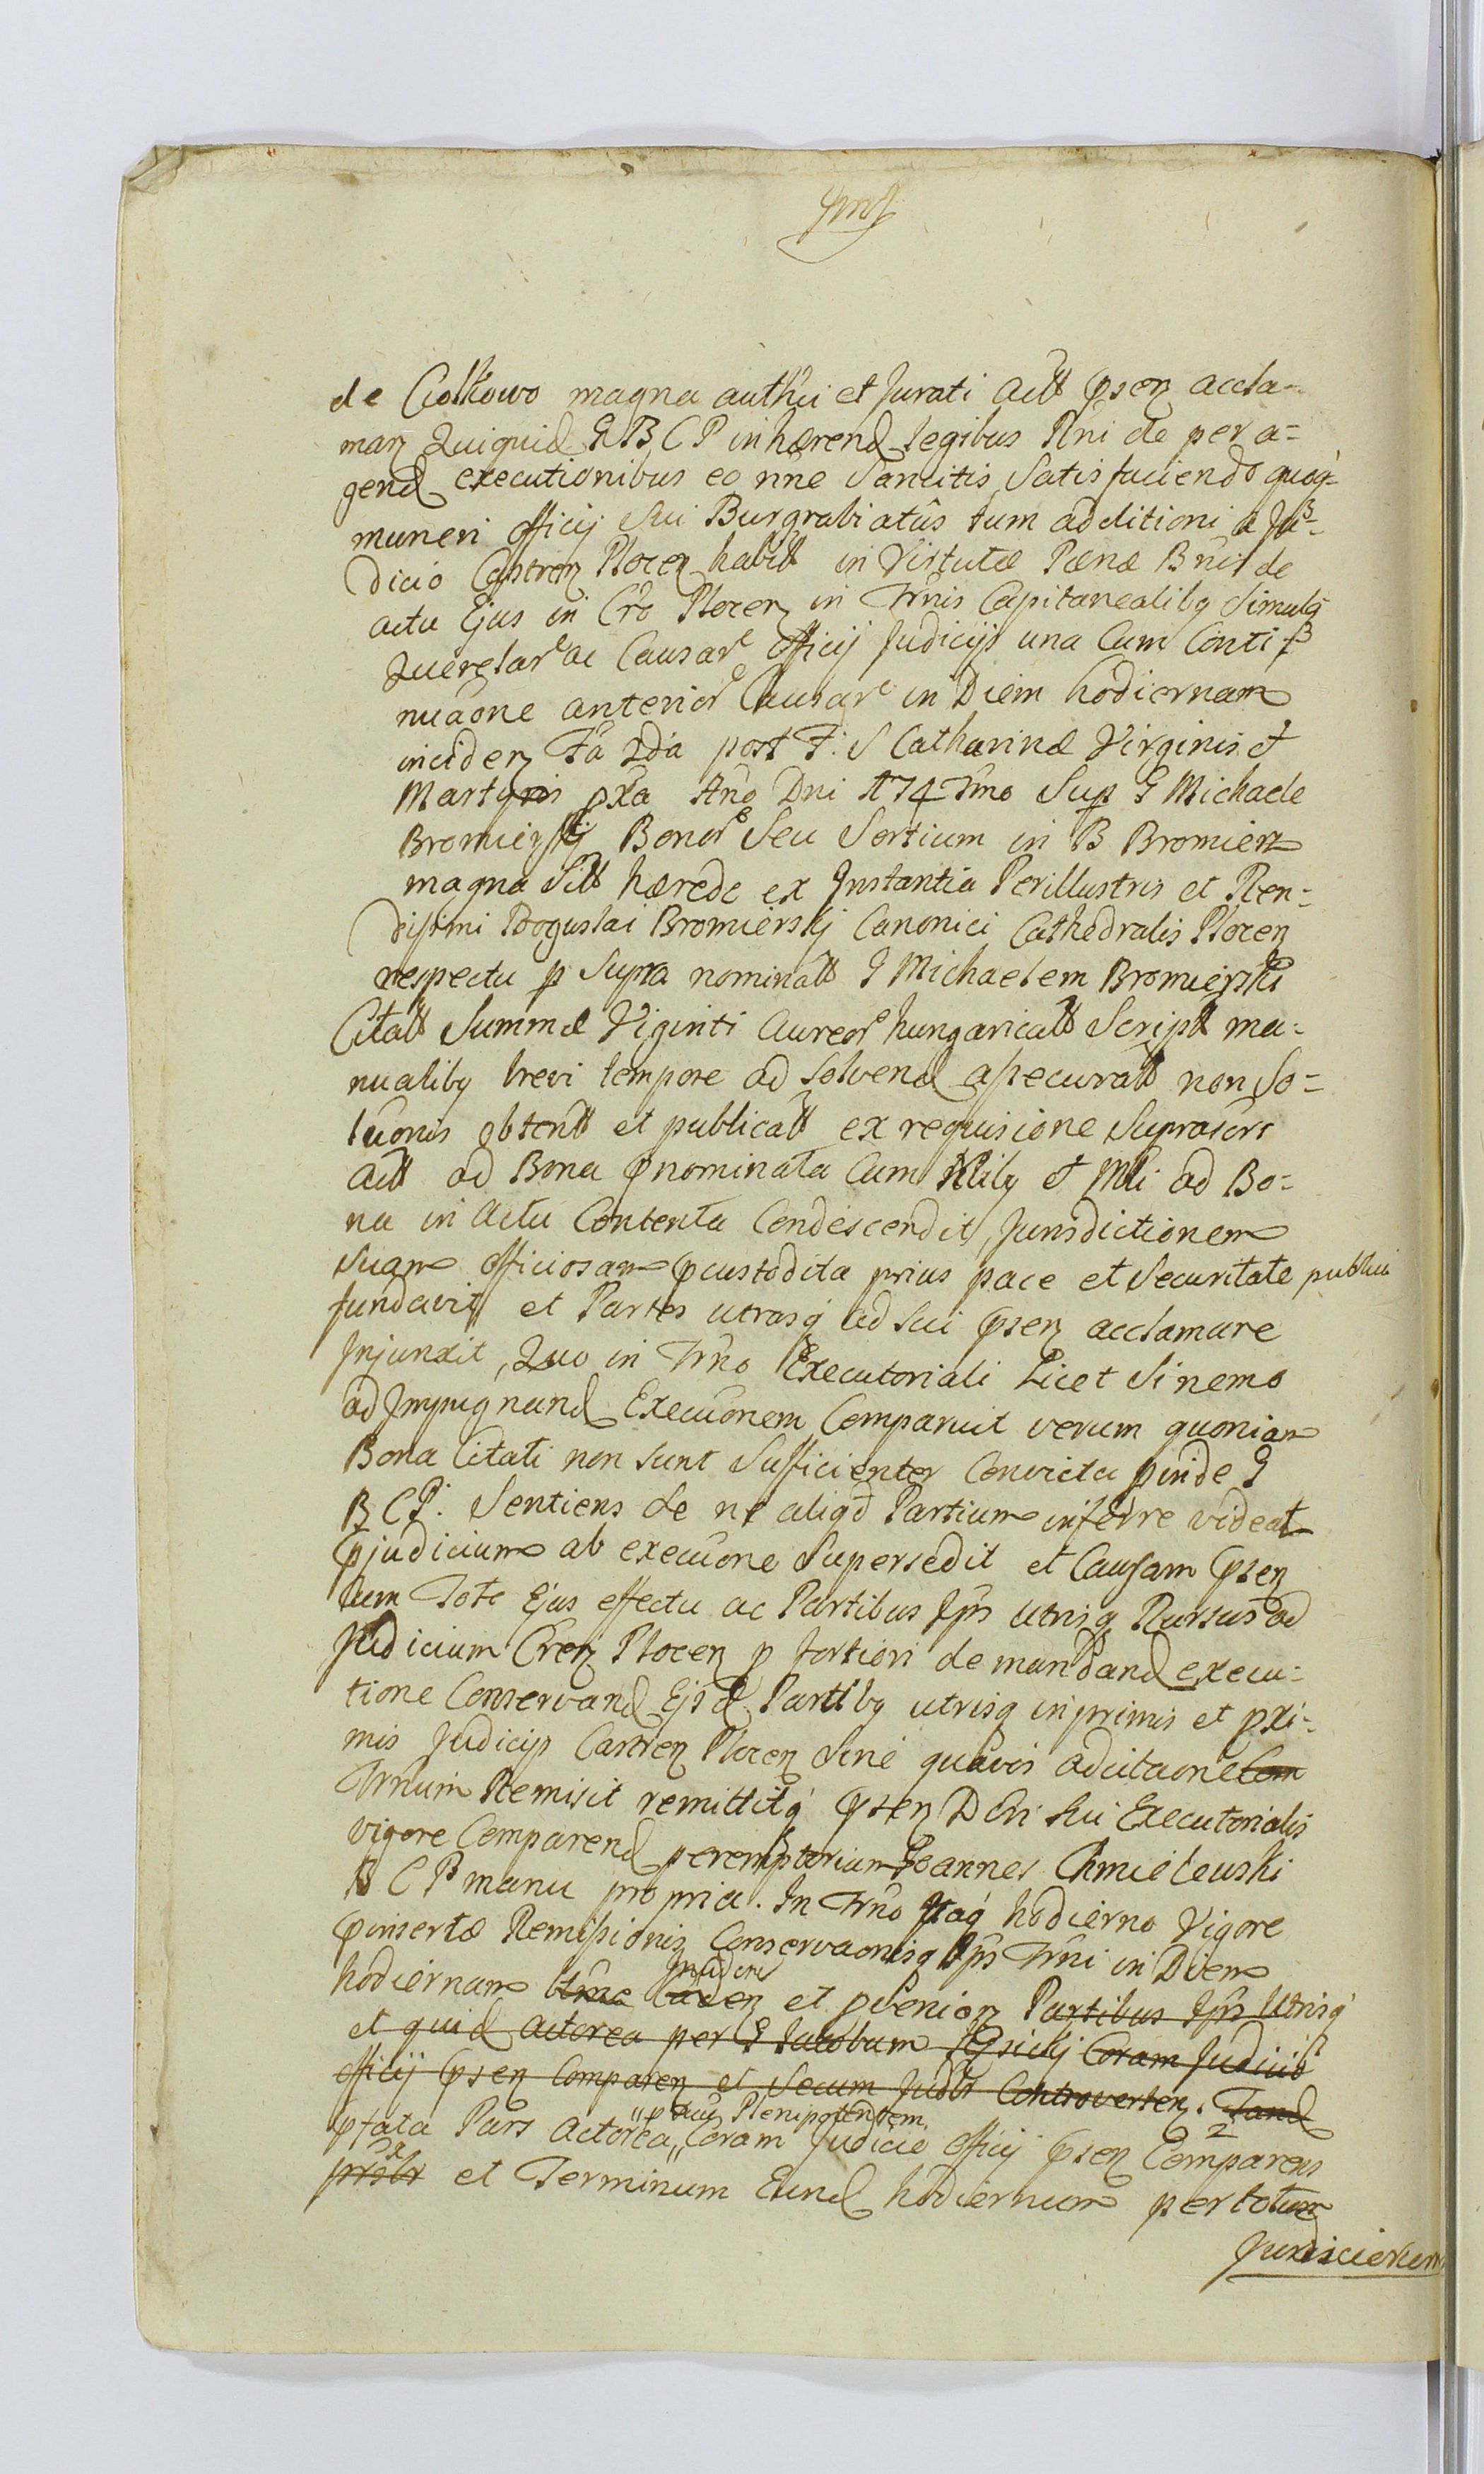 de Ciołkowo magna authci et Jurati actt psen accla=
man Quiquid G B C P inhærend legibus Rni de pera=
gend executionibus eo nne Sancitis Satisfaciendo quoq
muneri officij sui Burgrabiatûs tum additioni a Ju=
dicio Castren Plocen habitt in Virtutæ Pænæ Bnis de
actu Ejus in Cro Plocen in Trnis Capitanealibq simulq
Querelar ac Causar officij Judicijs una Cum Conti=
nuaone anterior Causar in Diem hodiernam
inciden Fa 2da post F: S Catharinæ Virginis et
Martyris pxa Ano Dni 174 Sup G Michaele
Bromierskij Bonor Seu Sortium in B Bromierz
magna sitt hærede ex Instantia Perillustris et Ren=
dissimi Boguslai Bromierskij Canonici Cathedralis Plocen
respectu p Supra nominatt G Michaelem Bromierski
Citatt Summæ Viginti Aureor hungaricatt Script ma=
nualibq brevi tempore ad solvend assecuratt non So=
luonis obtentt et publicatt ex requisicione Suprascri
actt ad Bona pnominata Cum Nlibq et Mli ad Bo=
na in Actu Contenta Condescendit, Jurisdictionem
suam officiosam pcustodita prius pace et Securitate publica
fundavit et Partes utrasq ad sui psen acclamare
Injunxit, Quo in Trno Executoriali Licet si nemo
ad Impugnand Execuonem Comparuit verum quoniam
Bona Citati non sunt Sufficienter Convicta pinde G
B C P. Sentiens de ne aliqd Partium inferre videat
pjudicium ab execuone Supersedit et Causam psen
cum Toto Ejus effectu ac Partibus Ipis utrisq Rursus ad
Judicium Cren Plocen p fortiori demandand execu=
tione Conservand Ejsd Partibq utrisq inprimis et pxi=
mis Judicijs Castren Plocen sine quavis adcitaone
Trnum Remisit remittitq psen Dcti sui Executorialis
vigore Comparend peremptorium Joannes Chmielewski
B C P manu propria. In Trno Itaq hodierno Vigore
pinsertæ Remissionis Conservaonisq Ipis Trni in Diem
Inciden
hodiernam et pvenien Partibus Ipis Utrisq
et quid actorea per G Jacobum Coram Judicio
officij psen Comparen et Secum Judlr Controverten. Tand
Plenipotentem
pfata Pars Actorea Coram Judicio officij psen Comparens
et Terminum Eund hodiernum per totum